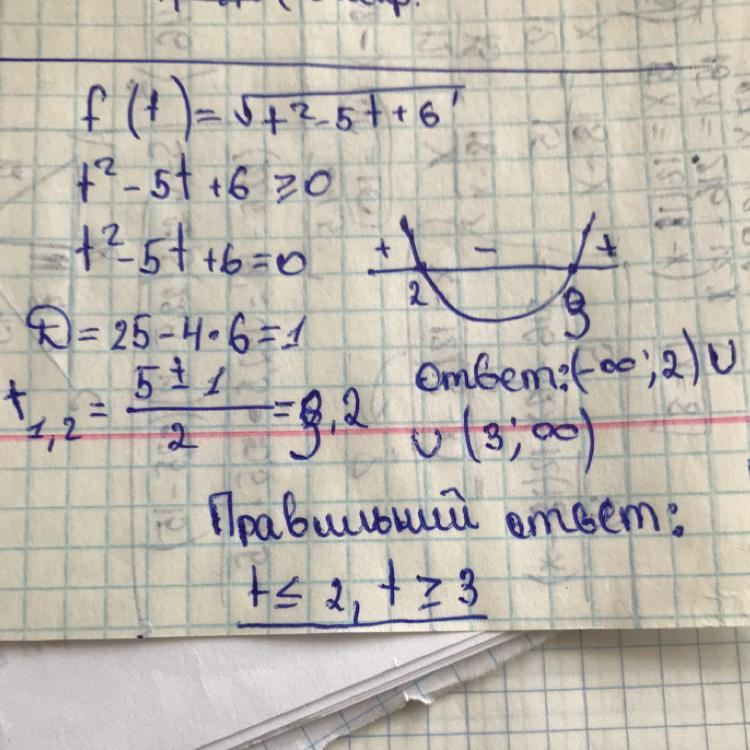 f(t) = √t²-5t+6
t²-5t+6 ≥0
t²-5t+6=0
+ - +
2 3
D=25-4·6=1
t₁,₂ = (5±1)/2 = 3,2
ответ: (-∞; 2) ∪
∪ (3; ∞)
Правильний ответ:
t ≤ 2, t ≥ 3